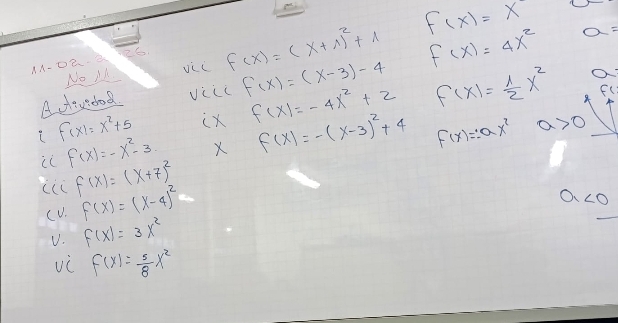 11-02-2026.
No 11
Actividad.
i f(x)= x²+5
ii f(x)=-x²-3.
iii f(x)= (x+7)²
iv. f(x)= (x-4)²
v. f(x)= 3x²
vi f(x)= 5/8 x²
vii f(x)= (x+1)²+1
viii f(x)= (x-3)-4
ix f(x)=-4x²+2
x f(x)=-(x-3)²+4
f(x)= x
f(x)= 4x²
f(x)= 1/2 x²
f(x)= ax² a>0
a=
a<0